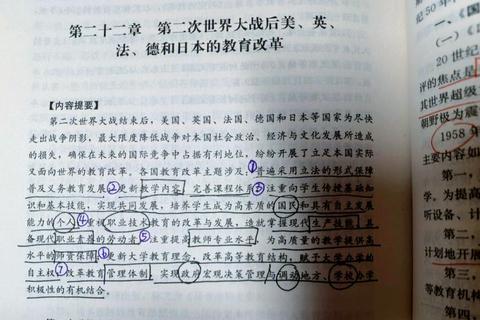 第二十二章 第二次世界大战后美、英、
法、德和日本的教育改革
【内容提要】
第二次世界大战结束后，美国、英国、法国、德国和日本等国家为尽快
走出战争阴影，最大限度降低战争对本国社会政治、经济与文化发展所造成
的损失，确保在未来的国际竞争中占据有利地位，纷纷开展了立足本国实际
又面向世界的教育改革。各国教育改革主题涉及①普遍采用立法的形式保障
普及义务教育发展②更新教学内容，完善课程体系③注重向学生传授基础知
识和基本技能，实现共同发展，培养学生成为高素质的国民和具有自身发展
能力的个人④重视职业技术教育的改革与发展，造就掌握现代生产技能、具
备现代职业素养的劳动者⑤注重提高教师专业水平，为高质量的教学提供高
水平的师资保障⑥更新大学教育理念，改革高等教育结构，赋予大学办学的
自主权⑦改革教育管理体制，实现政府宏观决策管理与调动地方、学校办学
积极性的有机结合。
纪50年
一、《国
（一）《
20 世纪
评的焦点是
其世界超级
朝野极为震
1958
主要内容如
第一，
学，为提高
听设备、计
第二，
计划地开展
第三，
等教育机构
第四，